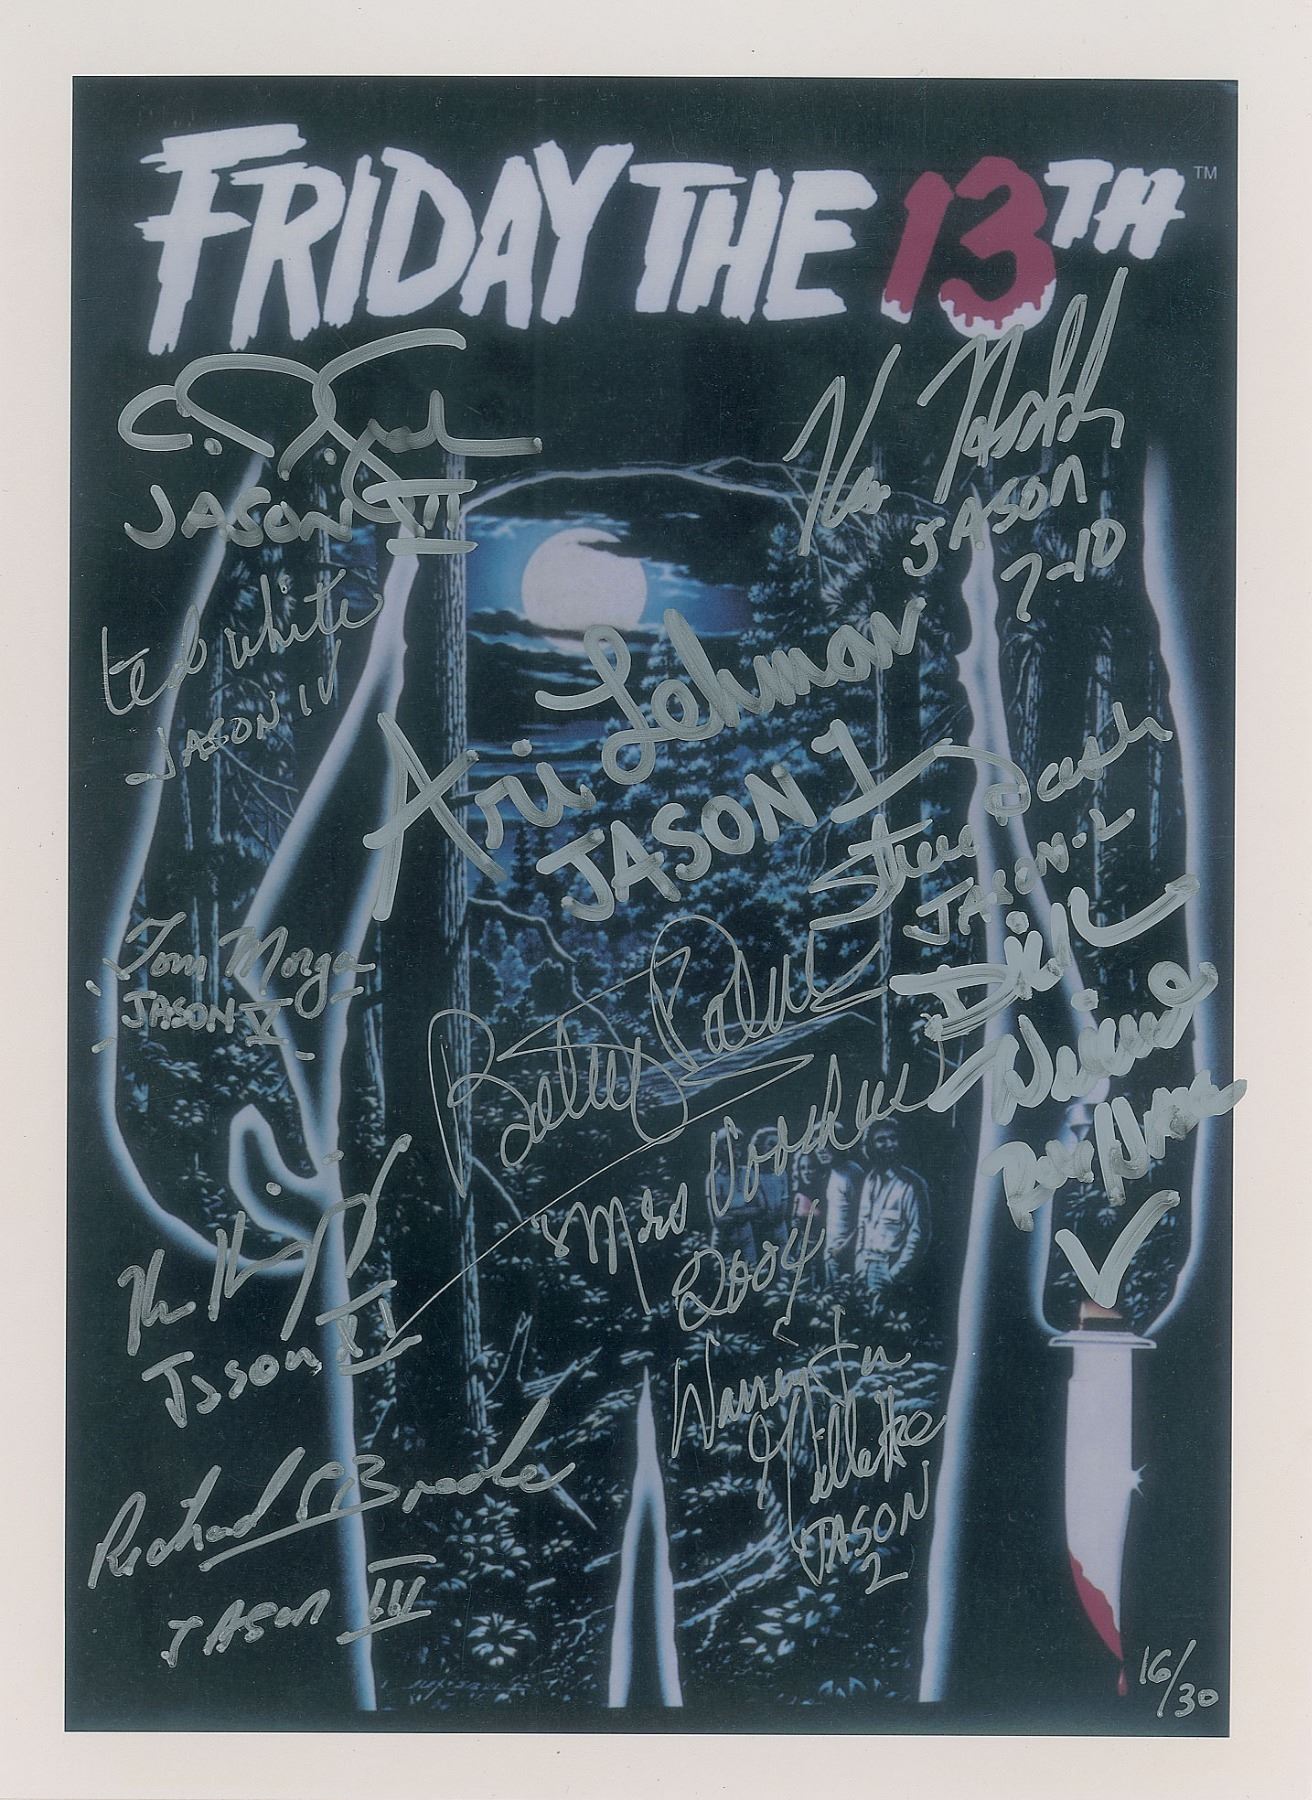 FRIDAY THE 13TH™
JASON III
Ken Hodder
JASON
7-10
ted white
JASON IV
Ari Lehman
JASON 1
Steve Dash
JASON-2
Tom Morga
JASON V
Betsy Palmer
Mrs Voorhees
2004
Dick
JASON VI
Warrington
Gillette
JASON
2
Richard Brooker
JASON III
16/30